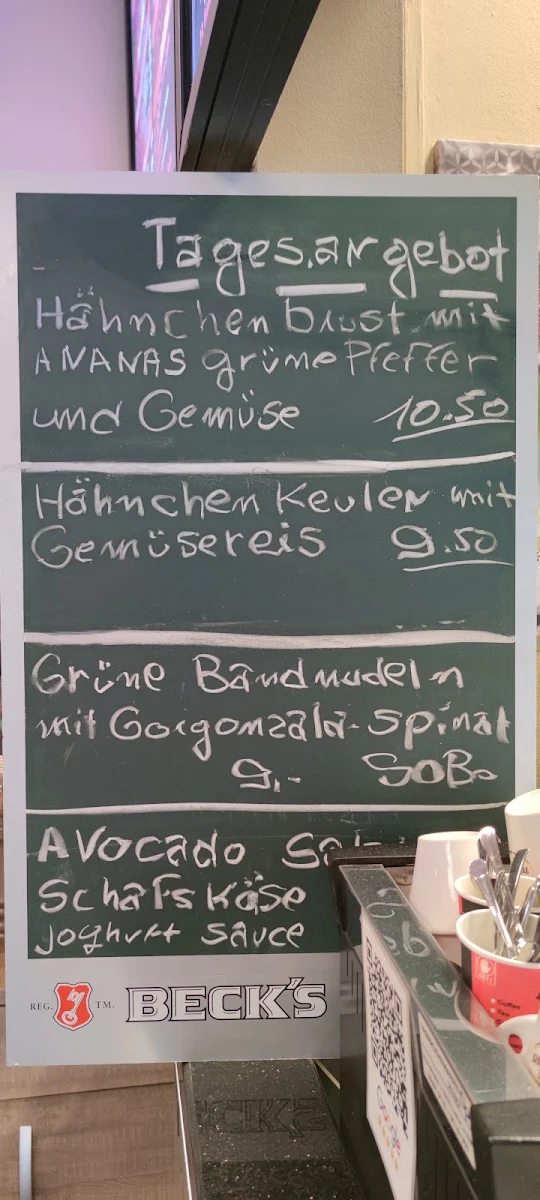 Tagesangebot
Hähnchen brust mit
ANANAS grüne Pfeffer
und Gemüse 10.50
Hähnchen Keulen mit
Gemüsereis 9.50
Grüne Bandnudeln
mit Gorgonzola-spinat
9,- SOße
Avocado
Schafskäse
Joghurt sauce
REG. TM. BECK'S
Coffee